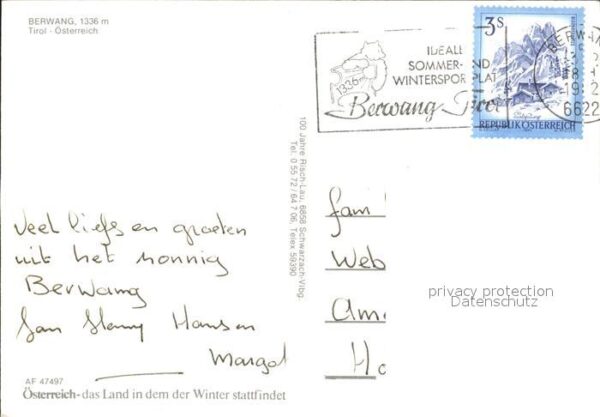 BERWANG, 1336 m
Tirol - Österreich
1336 m
IDEALE
SOMMER- UND
WINTERSPORTPLATZ
Berwang Tirol
3S
REPUBLIK ÖSTERREICH
BERWANG
6622
100 Jahre Risch-Lau, 6858 Schwarzach-Vlbg.
Tel. 0 55 72 / 64 7 06, Telex 59390
Veel liefs en groeten
uit het zonnig
Berwang
Jan Henny Hansen
Margot
fam
Web
Am
Ho
privacy protection
Datenschutz
AF 47497
Österreich - das Land in dem der Winter stattfindet